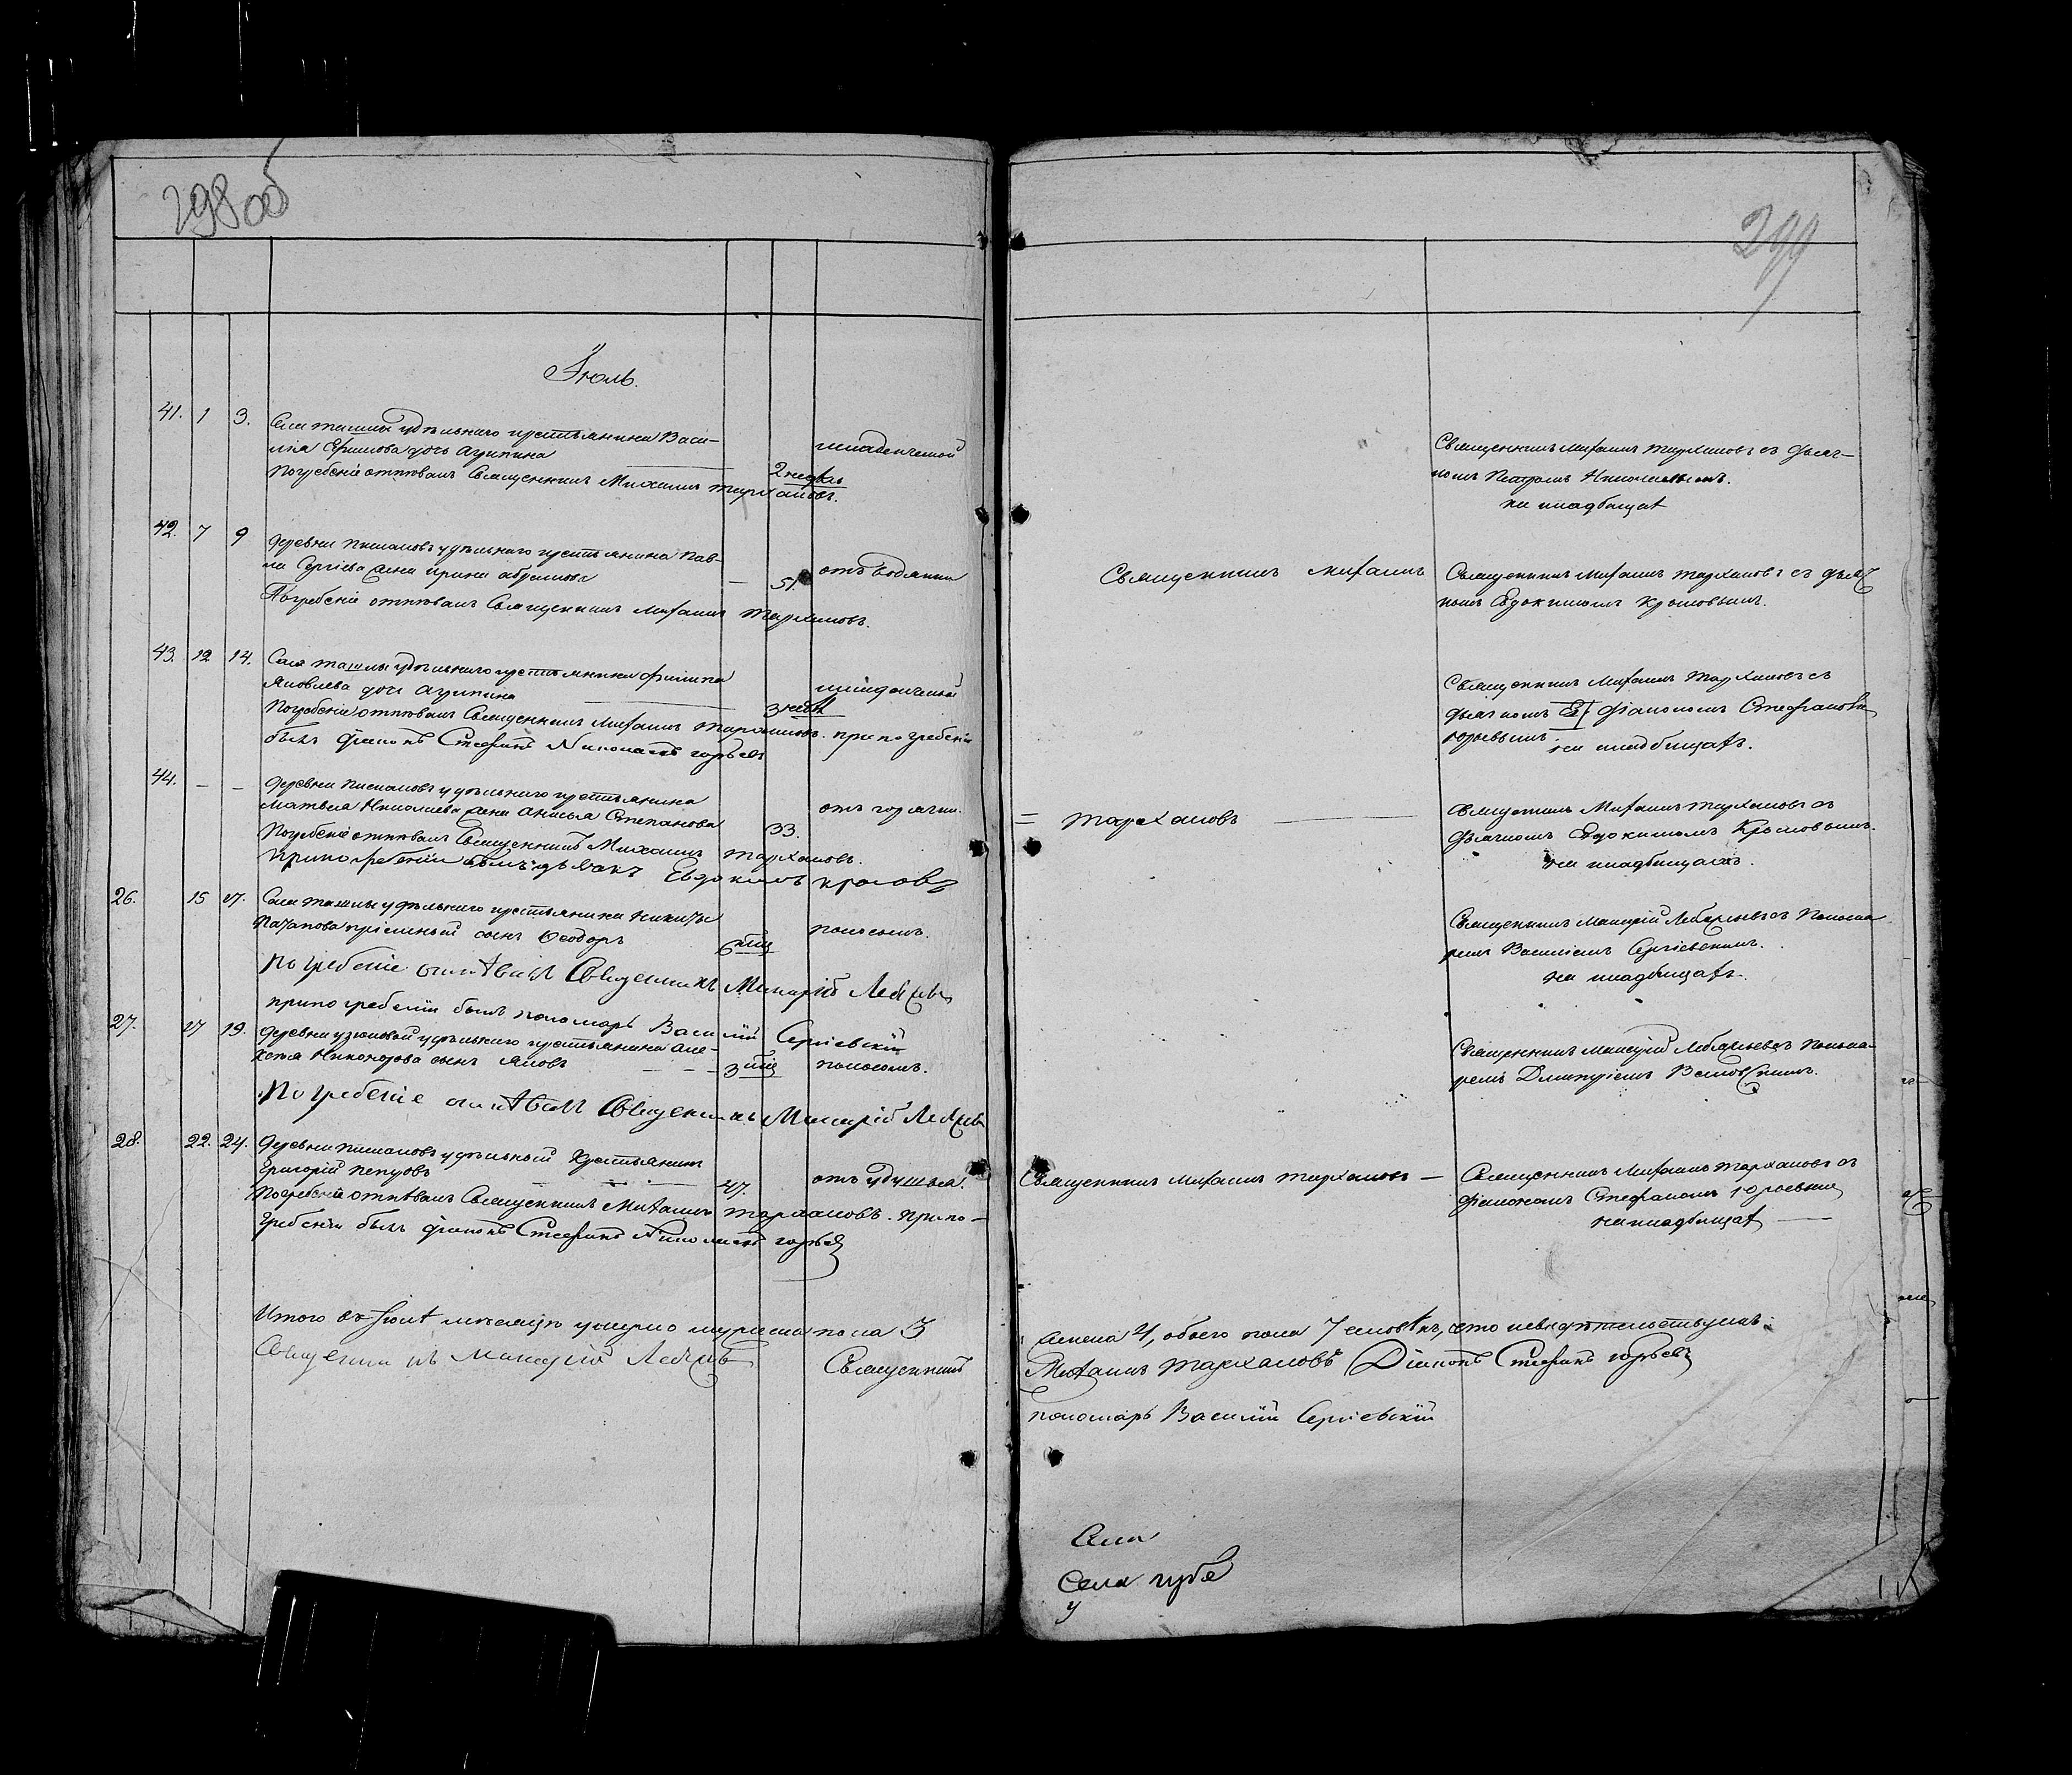 298 об
299
Іюль.
41. 1 3. Села Ташлы удѣльнаго крестьянина Васи-
лія Ефимова дочь Агрипина 2 недѣл младенческой
Погребеніе отпѣвалъ Священникъ Михаилъ Тархановъ.
Священникъ Михаилъ Тархановъ съ дьяч-
комъ Петромъ
на кладбищѣ
42. 7 9 Деревни удѣльнаго крестьянина Пав-
ла Сергіева жена Ирина Абрамова — 51. отъ водянки
Погребеніе отпѣвалъ Священникъ Михаилъ Тархановъ.
Священникъ Михаилъ
Священникъ Михаилъ Тархановъ съ дьяч
комъ Евдокимомъ Красовымъ.
43. 12 14. Села Ташлы удѣльнаго крестьянина Филипа
Яковлева дочь Агрипина 3 нед младенческой
Погребеніе отпѣвалъ Священникъ Михаилъ Тархановъ. при погребеніи
былъ діаконъ Стефанъ Николаевъ Юрьевъ
Священникъ Михаилъ Тархановъ съ
діакономъ Стефаномъ
Юрьевымъ
на кладбищѣ.
44. — — Деревни удѣльнаго крестьянина
Матвея Николаева жена Анисья Степанова 33. отъ горячки.
Погребеніе отпѣвалъ Священникъ Михаилъ Тархановъ.
При погребеніи былъ дьячокъ Евдокимъ Красовъ
= Тархановъ —
Священникъ Михаилъ Тархановъ съ
дьячкомъ Евдокимомъ Красовымъ.
на кладбищахъ.
26. 15 17. Села Ташлы удѣльнаго крестьянина Никиты
Патапова пріемный сынъ Феодоръ 6 мѣц поносомъ.
Погребеніе отпѣвалъ Священникъ Макарій
при погребеніи былъ пономарь Василій Сергіевскій
Священникъ Макарій съ Понома
ремъ Василіемъ Сергіевскимъ.
на кладбищѣ.
27. 17 19. Деревни Узюковой удѣльнаго крестьянина Але-
ксѣя Никонорова сынъ Яковъ — — — 3 мѣц поносомъ.
Погребеніе отпѣвалъ Священникъ Макарій
Священникъ Макарій съ Понома-
ремъ Димитріемъ
28. 22. 24. Деревни удѣльный Крестьянинъ
Григорій Петровъ 47. отъ удушья.
Погребеніе отпѣвалъ Священникъ Михаилъ Тархановъ. при по-
гребеніи былъ діаконъ Стефанъ Николаевъ Юрьев
Священникъ Михаилъ Тархановъ —
Священникъ Михаилъ Тархановъ съ
діакономъ Стефаномъ Юрьевым
на кладбищѣ —
Итого въ Іюлѣ мѣсяцѣ умерло мужеска пола 3
женска 4, обоего пола 7 человѣкъ, что свидѣтельствуемъ.
Священникъ Макарій Священникъ
Михаилъ Тархановъ Діаконъ Стефанъ Юрьевъ
пономарь Василій Сергіевскій
Села
Села губе
У